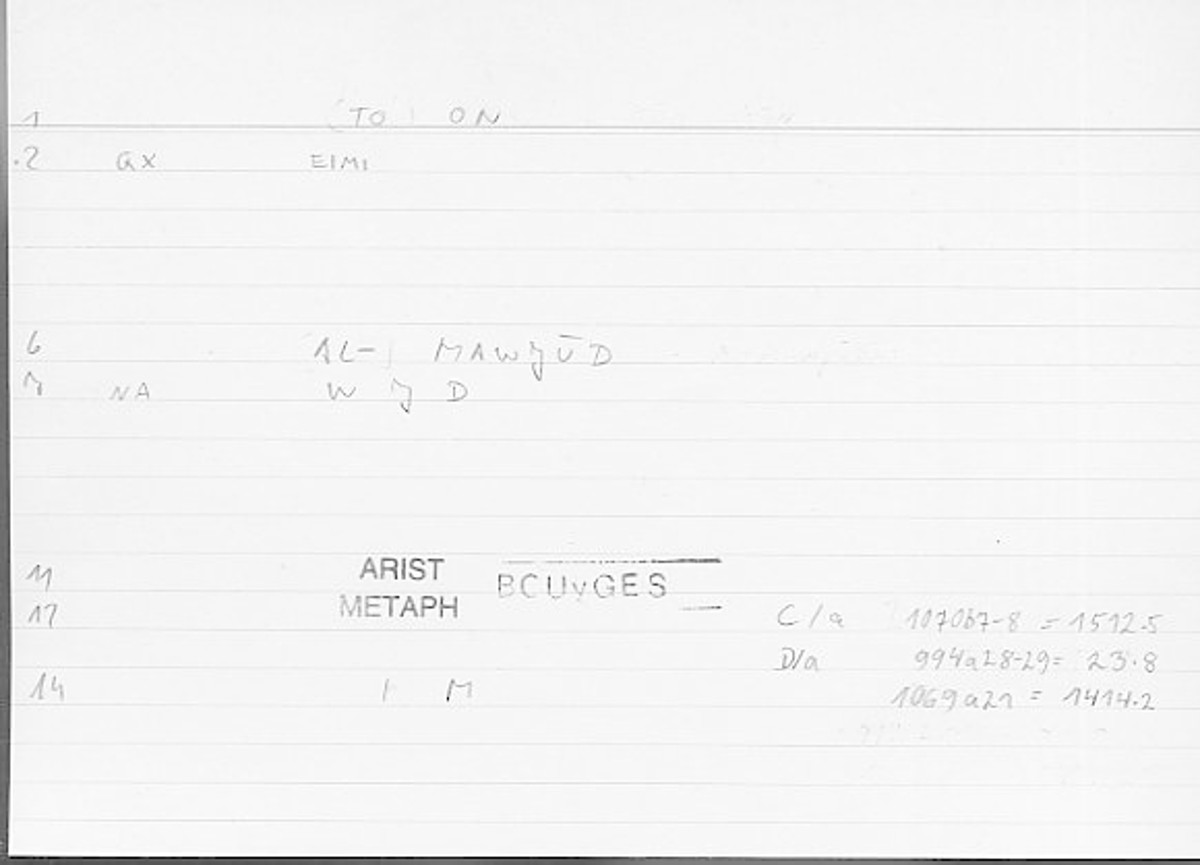 1 (TO) ON
.2 GX EIMI
6 AL- MAWJŪD
7 NA W J D
11 ARIST BCUvGES
12 METAPH C/a 1070b7-8 = 1512.5
D/a 994a28-29= 23.8
14 I M 1069a21 = 1414.2